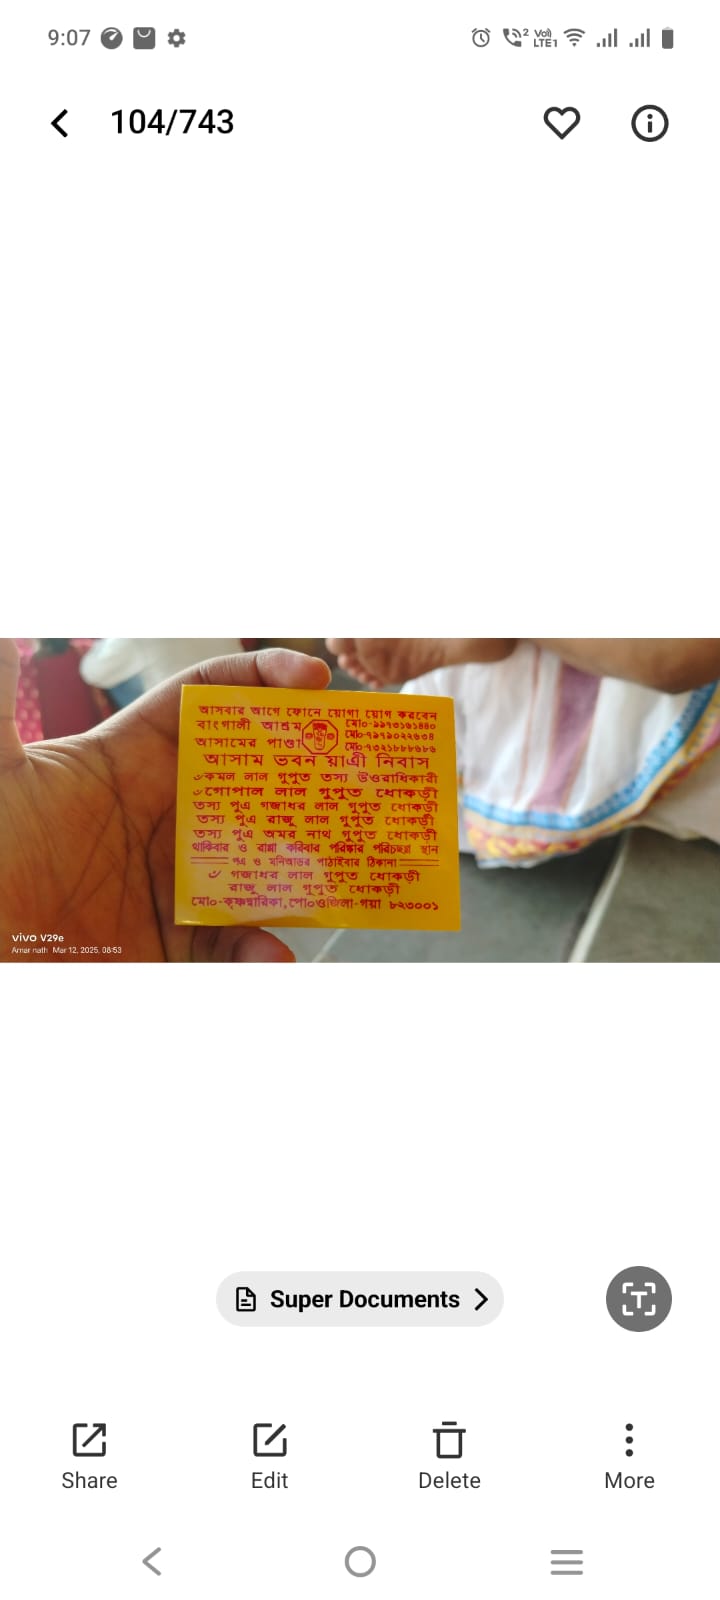 9:07
104/743
আসবার আগে ফোনে য়োগা য়োগ করবেন
বাংগালী আশ্রম মো০-৯৯৭৩১৬১৪৪০
মো০-৭৯৭৯০২২৬৩৪
আসামের পাণ্ডা মো০-৭৩২১৮৮৮৬৮৬
আসাম ভবন য়াত্রী নিবাস
কমল লাল গুপুত তস্য উওরাধিকারী
গোপাল লাল গুপুত ধোকড়ী
তস্য পুএ গজাধর লাল গুপুত ধোকড়ী
তস্য পুএ রাজু লাল গুপুত ধোকড়ী
তস্য পুএ অমর নাথ গুপুত ধোকড়ী
থাকিবার ও রান্না করিবার পরিষ্কার পরিচছন্ন স্থান
পএ ও মনিঅাডর পাঠাইবার ঠিকানা
গজাধর লাল গুপুত ধোকড়ী
রাজু লাল গুপুত ধোকড়ী
মো০-কৃষ্ণদ্বারিকা, পো০ওজিলা-গয়া ৮২৩০০১
vivo V29e
Amar nath Mar 12, 2025, 08:53
Super Documents
Share Edit Delete More